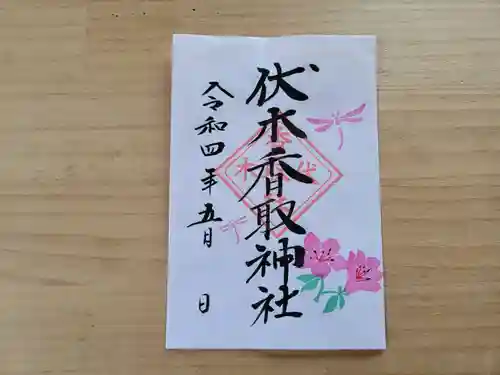 伏木香取神社
令和四年五月 日